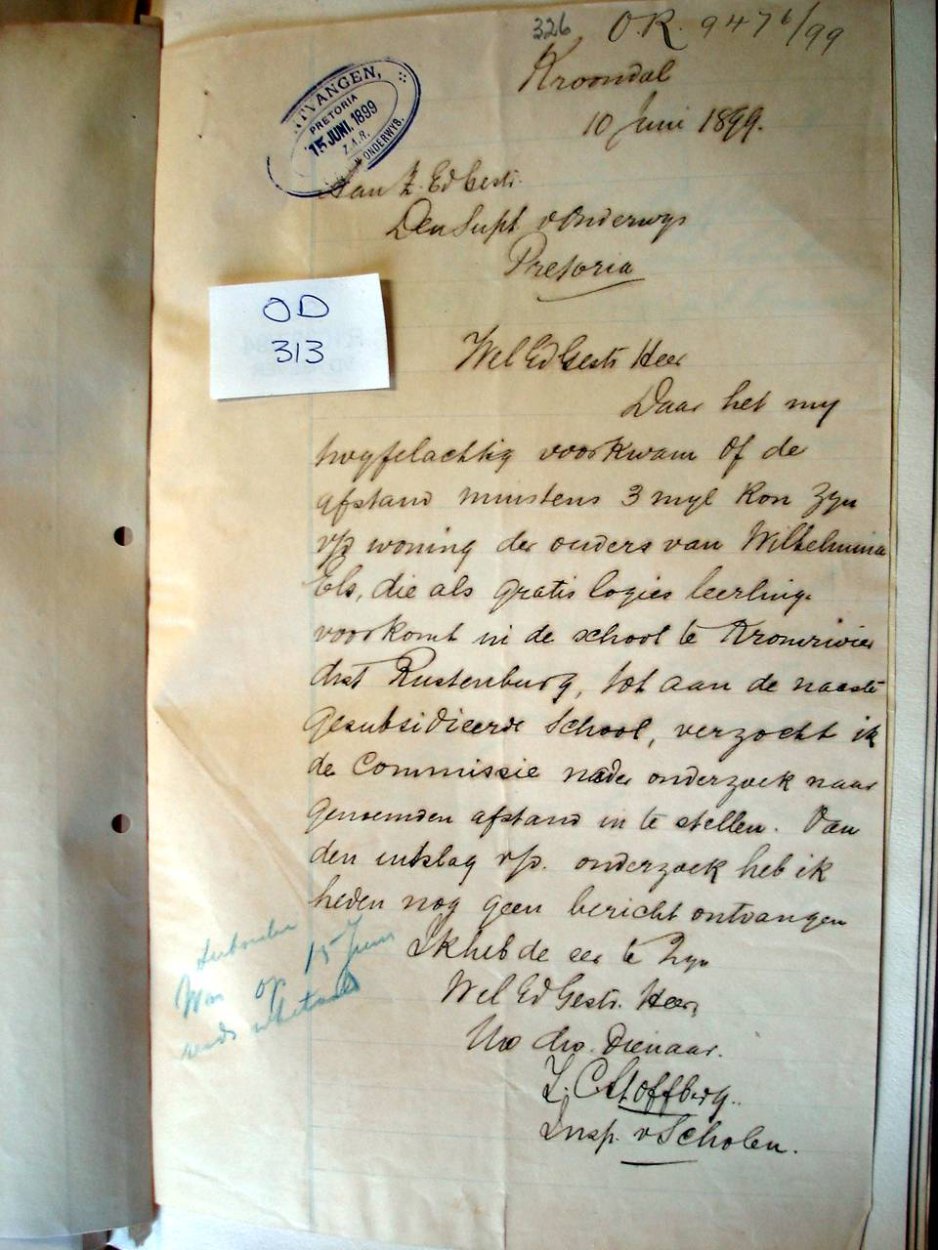 326 O.R. 9476/99
Kroondal
10 Juni 1899.
ONTVANGEN,
PRETORIA
15 JUNI. 1899
Z.A.R.
ONDERWYS.
Aan Z. Ed Gestr.
Den Supt v Onderwys
Pretoria
OD
313
Wel Ed Gestr Heer
Daar het my
twyfelachtig voorkwam of de
afstand minstens 3 myl kon zyn
v/d woning der ouders van Wilhelmina
Els, die als gratis logies leerling
voorkomt in de school te Kromrivier
dist Rustenburg, tot aan de naaste
gesubsidieerde School, verzocht ik
de Commissie nader onderzoek naar
genoemden afstand in te stellen. Van
den uitslag v/d. onderzoek heb ik
heden nog geen bericht ontvangen
Ik heb de eer te zyn
Wel Ed Gestr. Heer,
Uw dw. Dienaar.
Z. C Stoffberg.
Insp. v Scholen.
op 15 Juni